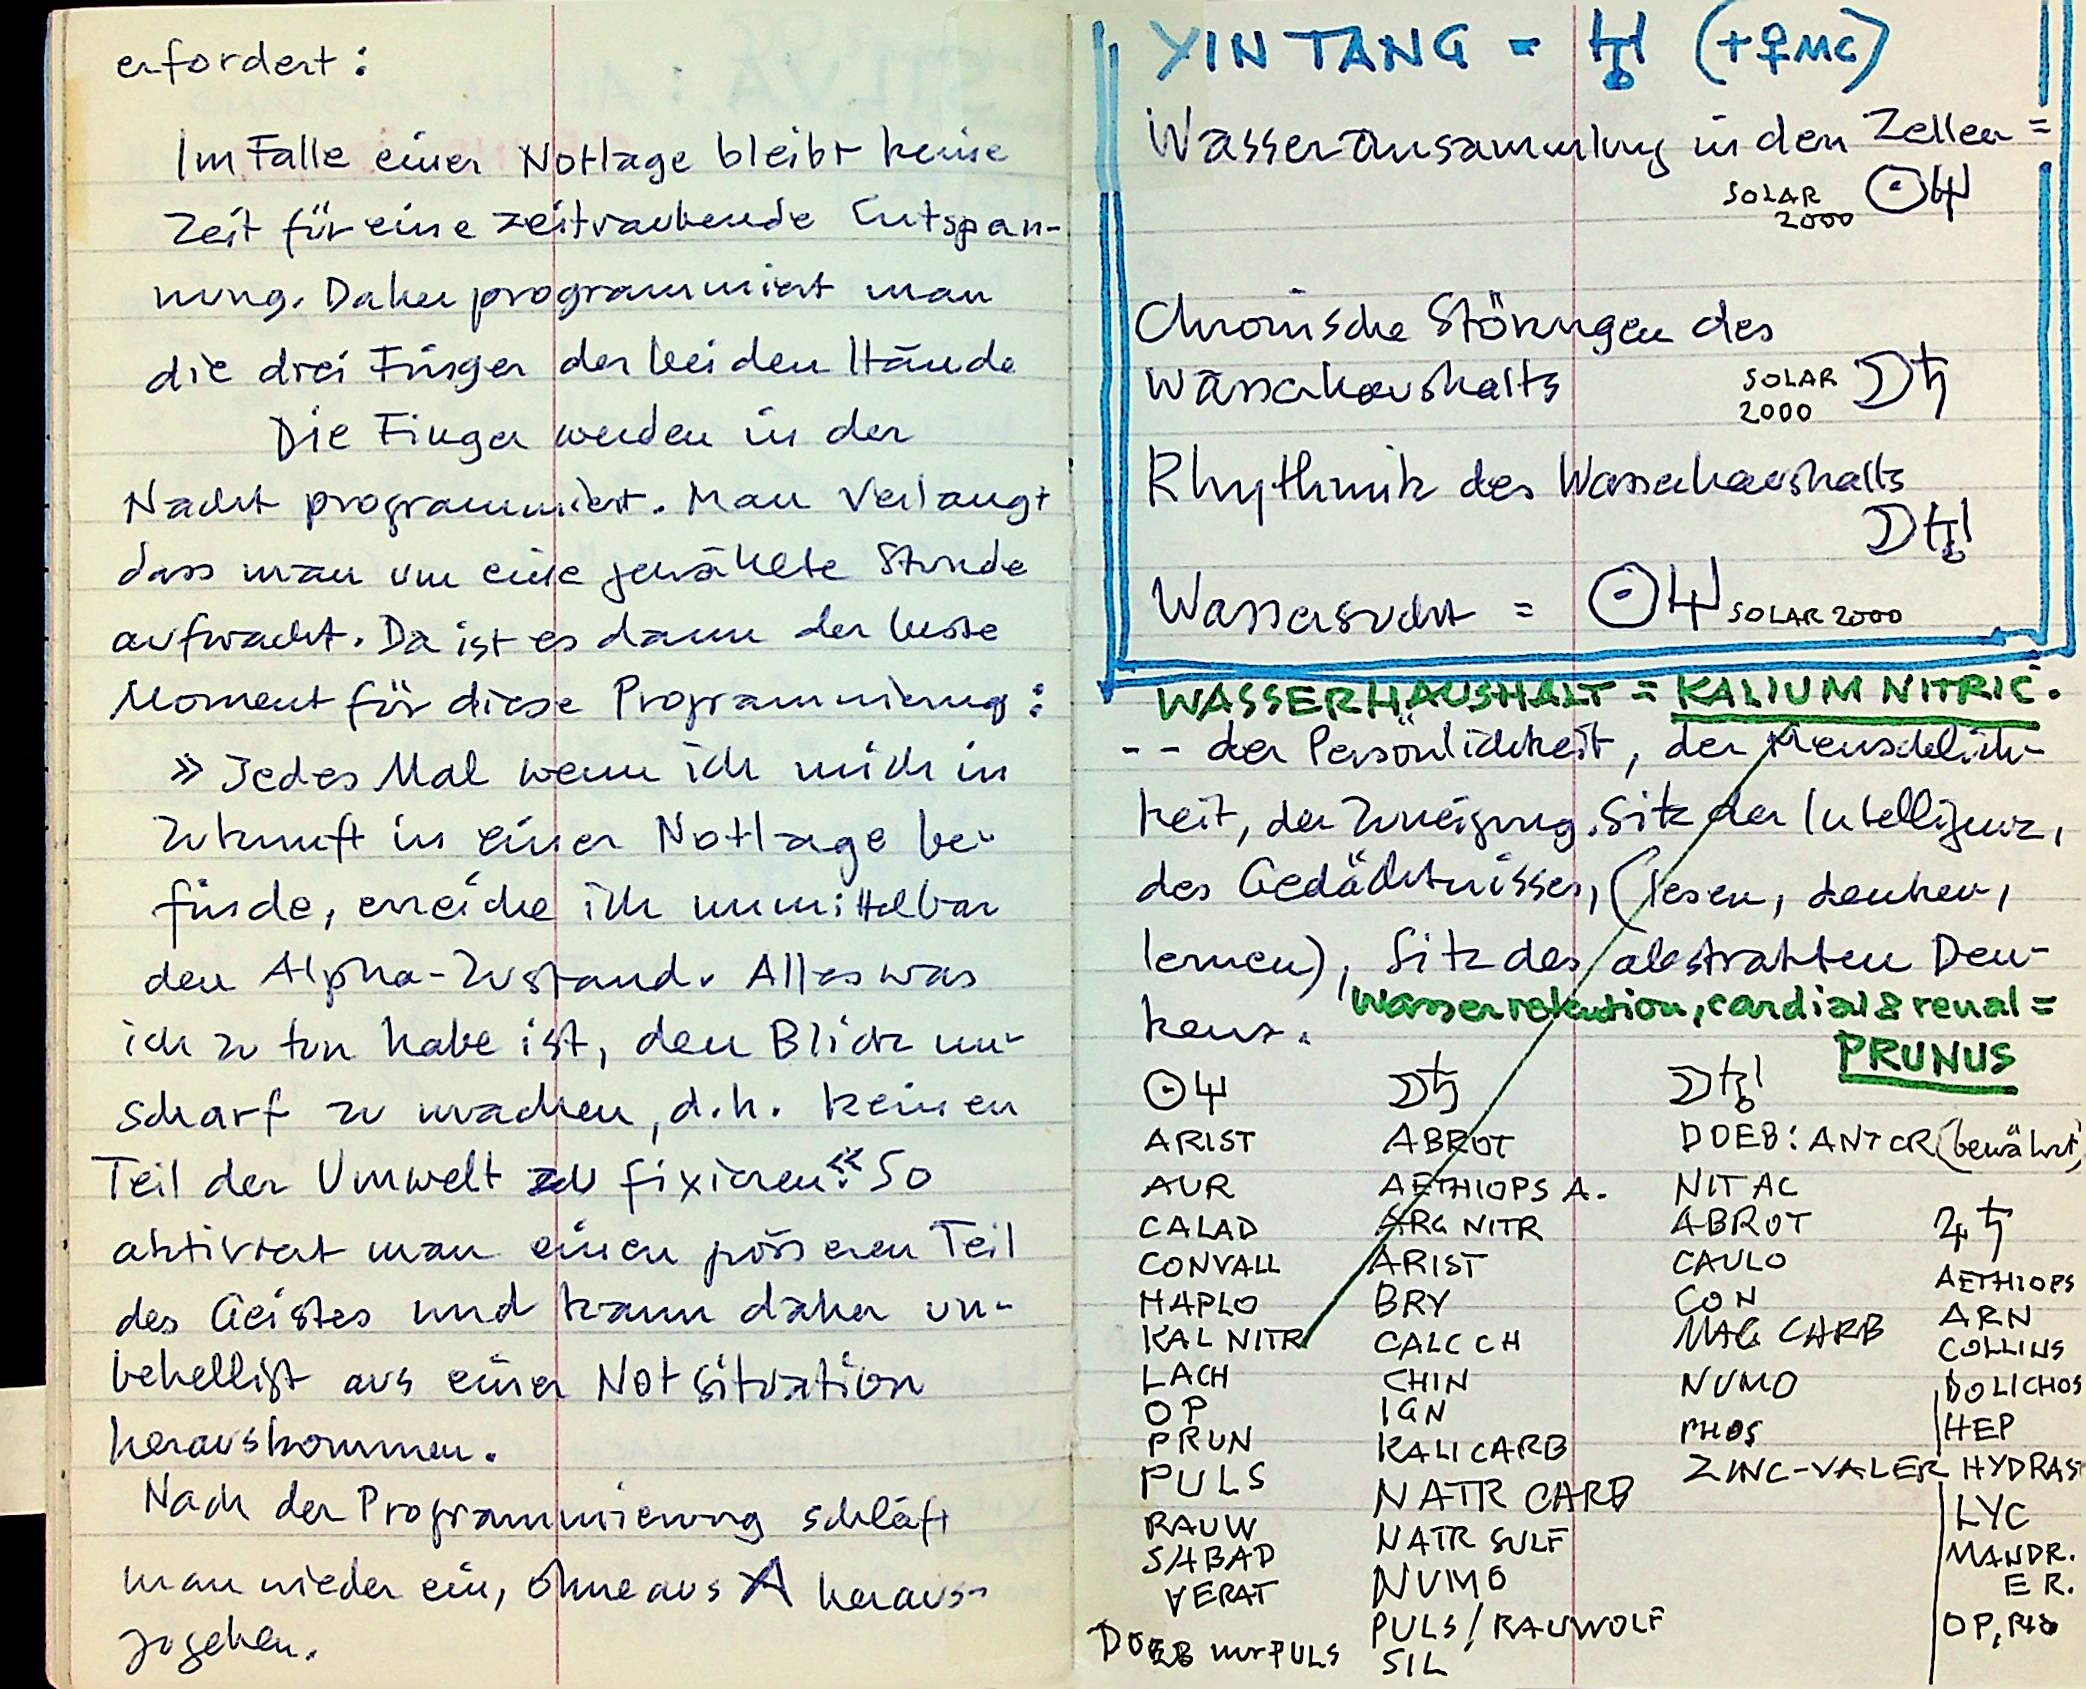 erfordert:
Im Falle einer Notlage bleibt keine
Zeit für eine zeitraubende Entspan-
nung. Daher programmiert man
die drei Finger der beiden Hände
Die Finger werden in der
Nacht programmiert. Man verlangt
dass man um eine gewählte Stunde
aufwacht. Da ist es dann der beste
Moment für diese Programmierung:
» Jedes Mal wenn ich mich in
Zukunft in einer Notlage be-
finde, erreiche ich unmittelbar
den Alpha-Zustand. Alles was
ich zu tun habe ist, den Blick un-
scharf zu machen, d.h. keinen
Teil der Umwelt zu fixieren.« So
aktiviert man einen grösseren Teil
des Geistes und kann daher un-
behelligt aus einer Notsituation
herauskommen.
Nach der Programmierung schläft
man wieder ein, ohne aus A heraus-
zugehen.
YIN TANG = ♅ (+♀MC)
Wasseransammlung in den Zellen =
SOLAR 2000 ☉♃
Chronische Störungen des
Wasserhaushalts SOLAR 2000 ☽♄
Rhythmik des Wasserhaushalts
☽♅
Wassersucht = ☉♃ SOLAR 2000
WASSERHAUSHALT = KALIUM NITRIC.
-- der Persönlichkeit, der Menschlich-
keit, der Zuneigung. Sitz der Intelligenz,
des Gedächtnisses, (lesen, denken,
lernen), Sitz des abstrakten Den-
kens.
Wasserretention, cardial & renal =
PRUNUS
☉♃
ARIST
AUR
CALAD
CONVALL
HAPLO
KAL NITR
LACH
OP
PRUN
PULS
RAUW
SABAD
VERAT
DOEB nur PULS
☽♄
ABROT
AETHIOPS A.
ARG NITR
ARIST
BRY
CALC CH
CHIN
IGN
KALI CARB
NATR CARB
NATR SULF
NUMO
PULS / RAUWOLF
SIL
☽♅
DOEB: ANT CR (bewährt)
NIT AC
ABROT
CAULO
CON
MAG CARB
NUMO
PHOS
ZINC-VALER
♃♄
AETHIOPS
ARN
COLLINS
DOLICHOS
HEP
HYDRAST
LYC
MANDR.
E R.
OP,